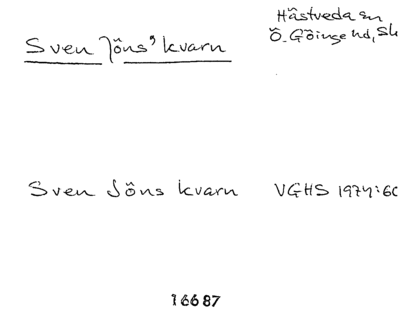 Hästveda sn
Sven Jöns' kvarn Ö. Göinge hd, Sk
Sven Jöns kvarn VGHS 1974:60
16687